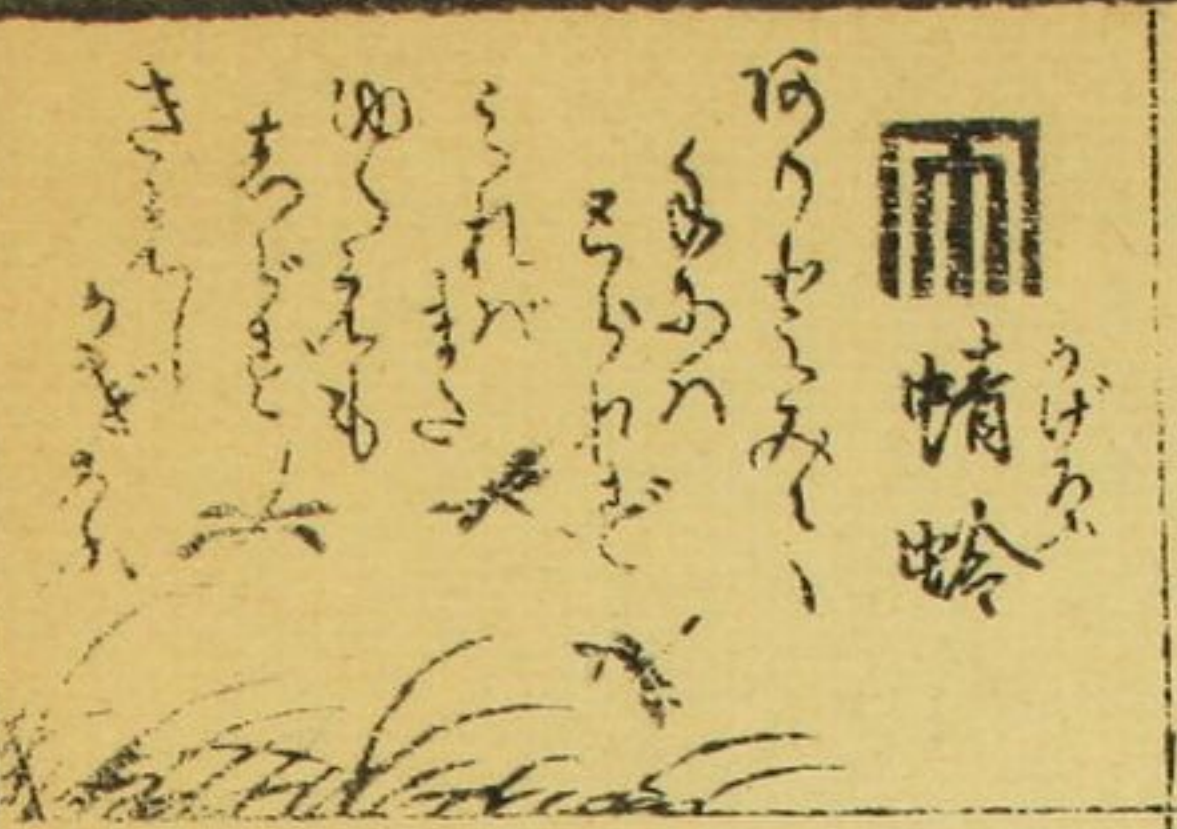 蜻蛉
かげろふ
ありとみて
手には
とられず
みれば
また
ゆくゑも
しらず
きえし
かげろふ